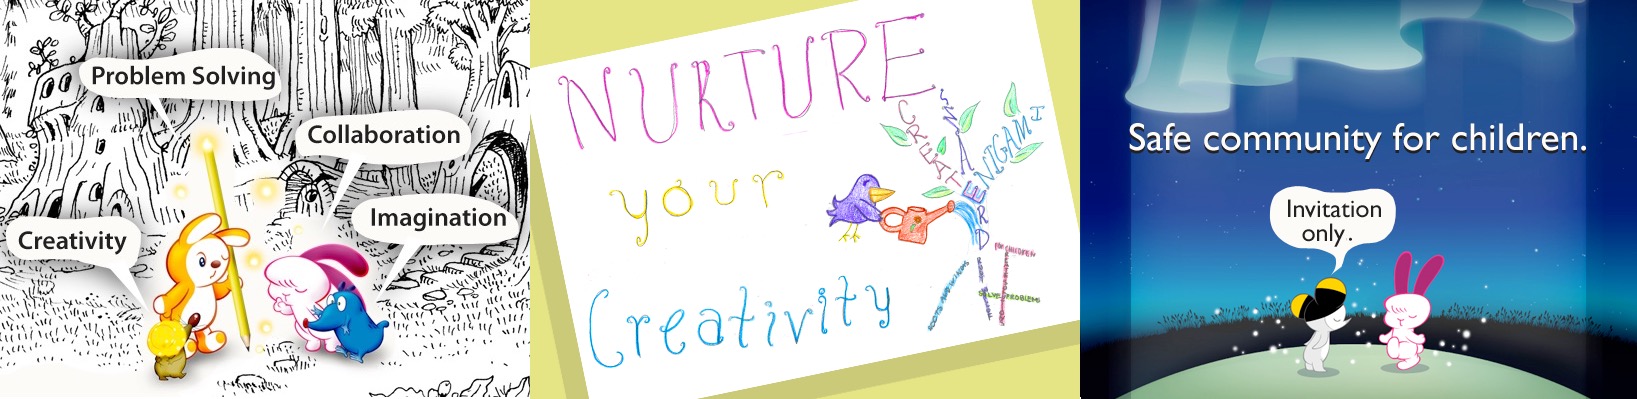 Problem Solving
Collaboration
Imagination
Creativity
NURTURE
your
Creativity
CREAT
ENIGAMI
SOLVE PROBLEMS
Safe community for children.
Invitation
only.